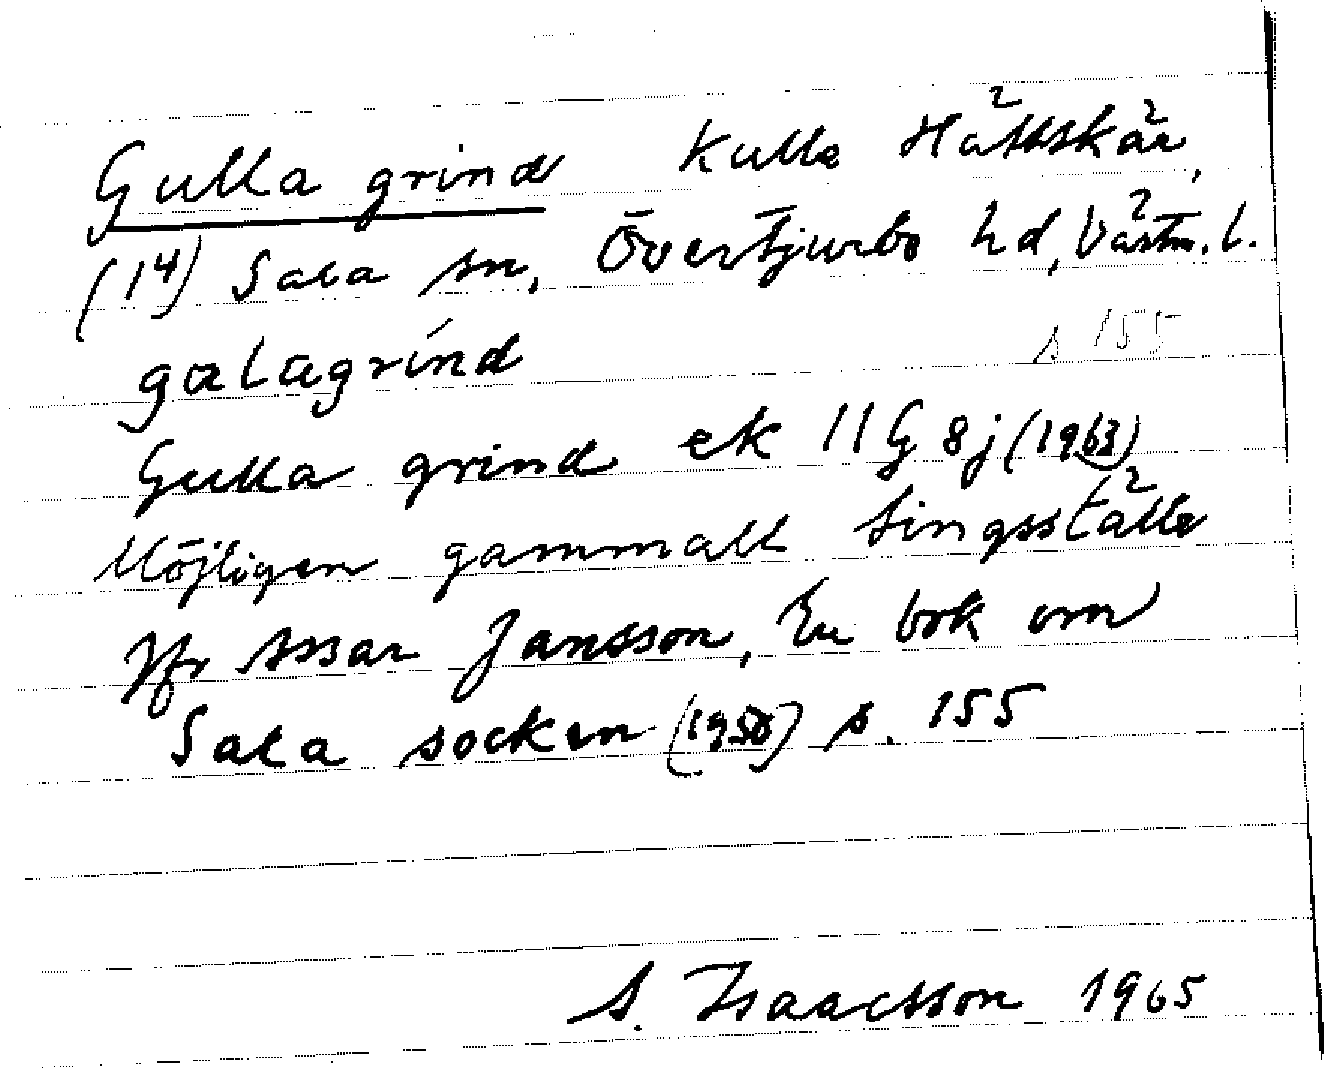 Gulla grind Kulle Hällskär,
(14) Sala sn, Övertjurbo hd, Västm. l.
galagrind s 155
Gulla grind ek 11G 8j (1963)
Möjligen gammalt tingsställe
Jfr Assar Jansson, En bok om
Sala socken (1950) s. 155
S. Isaacsson 1965